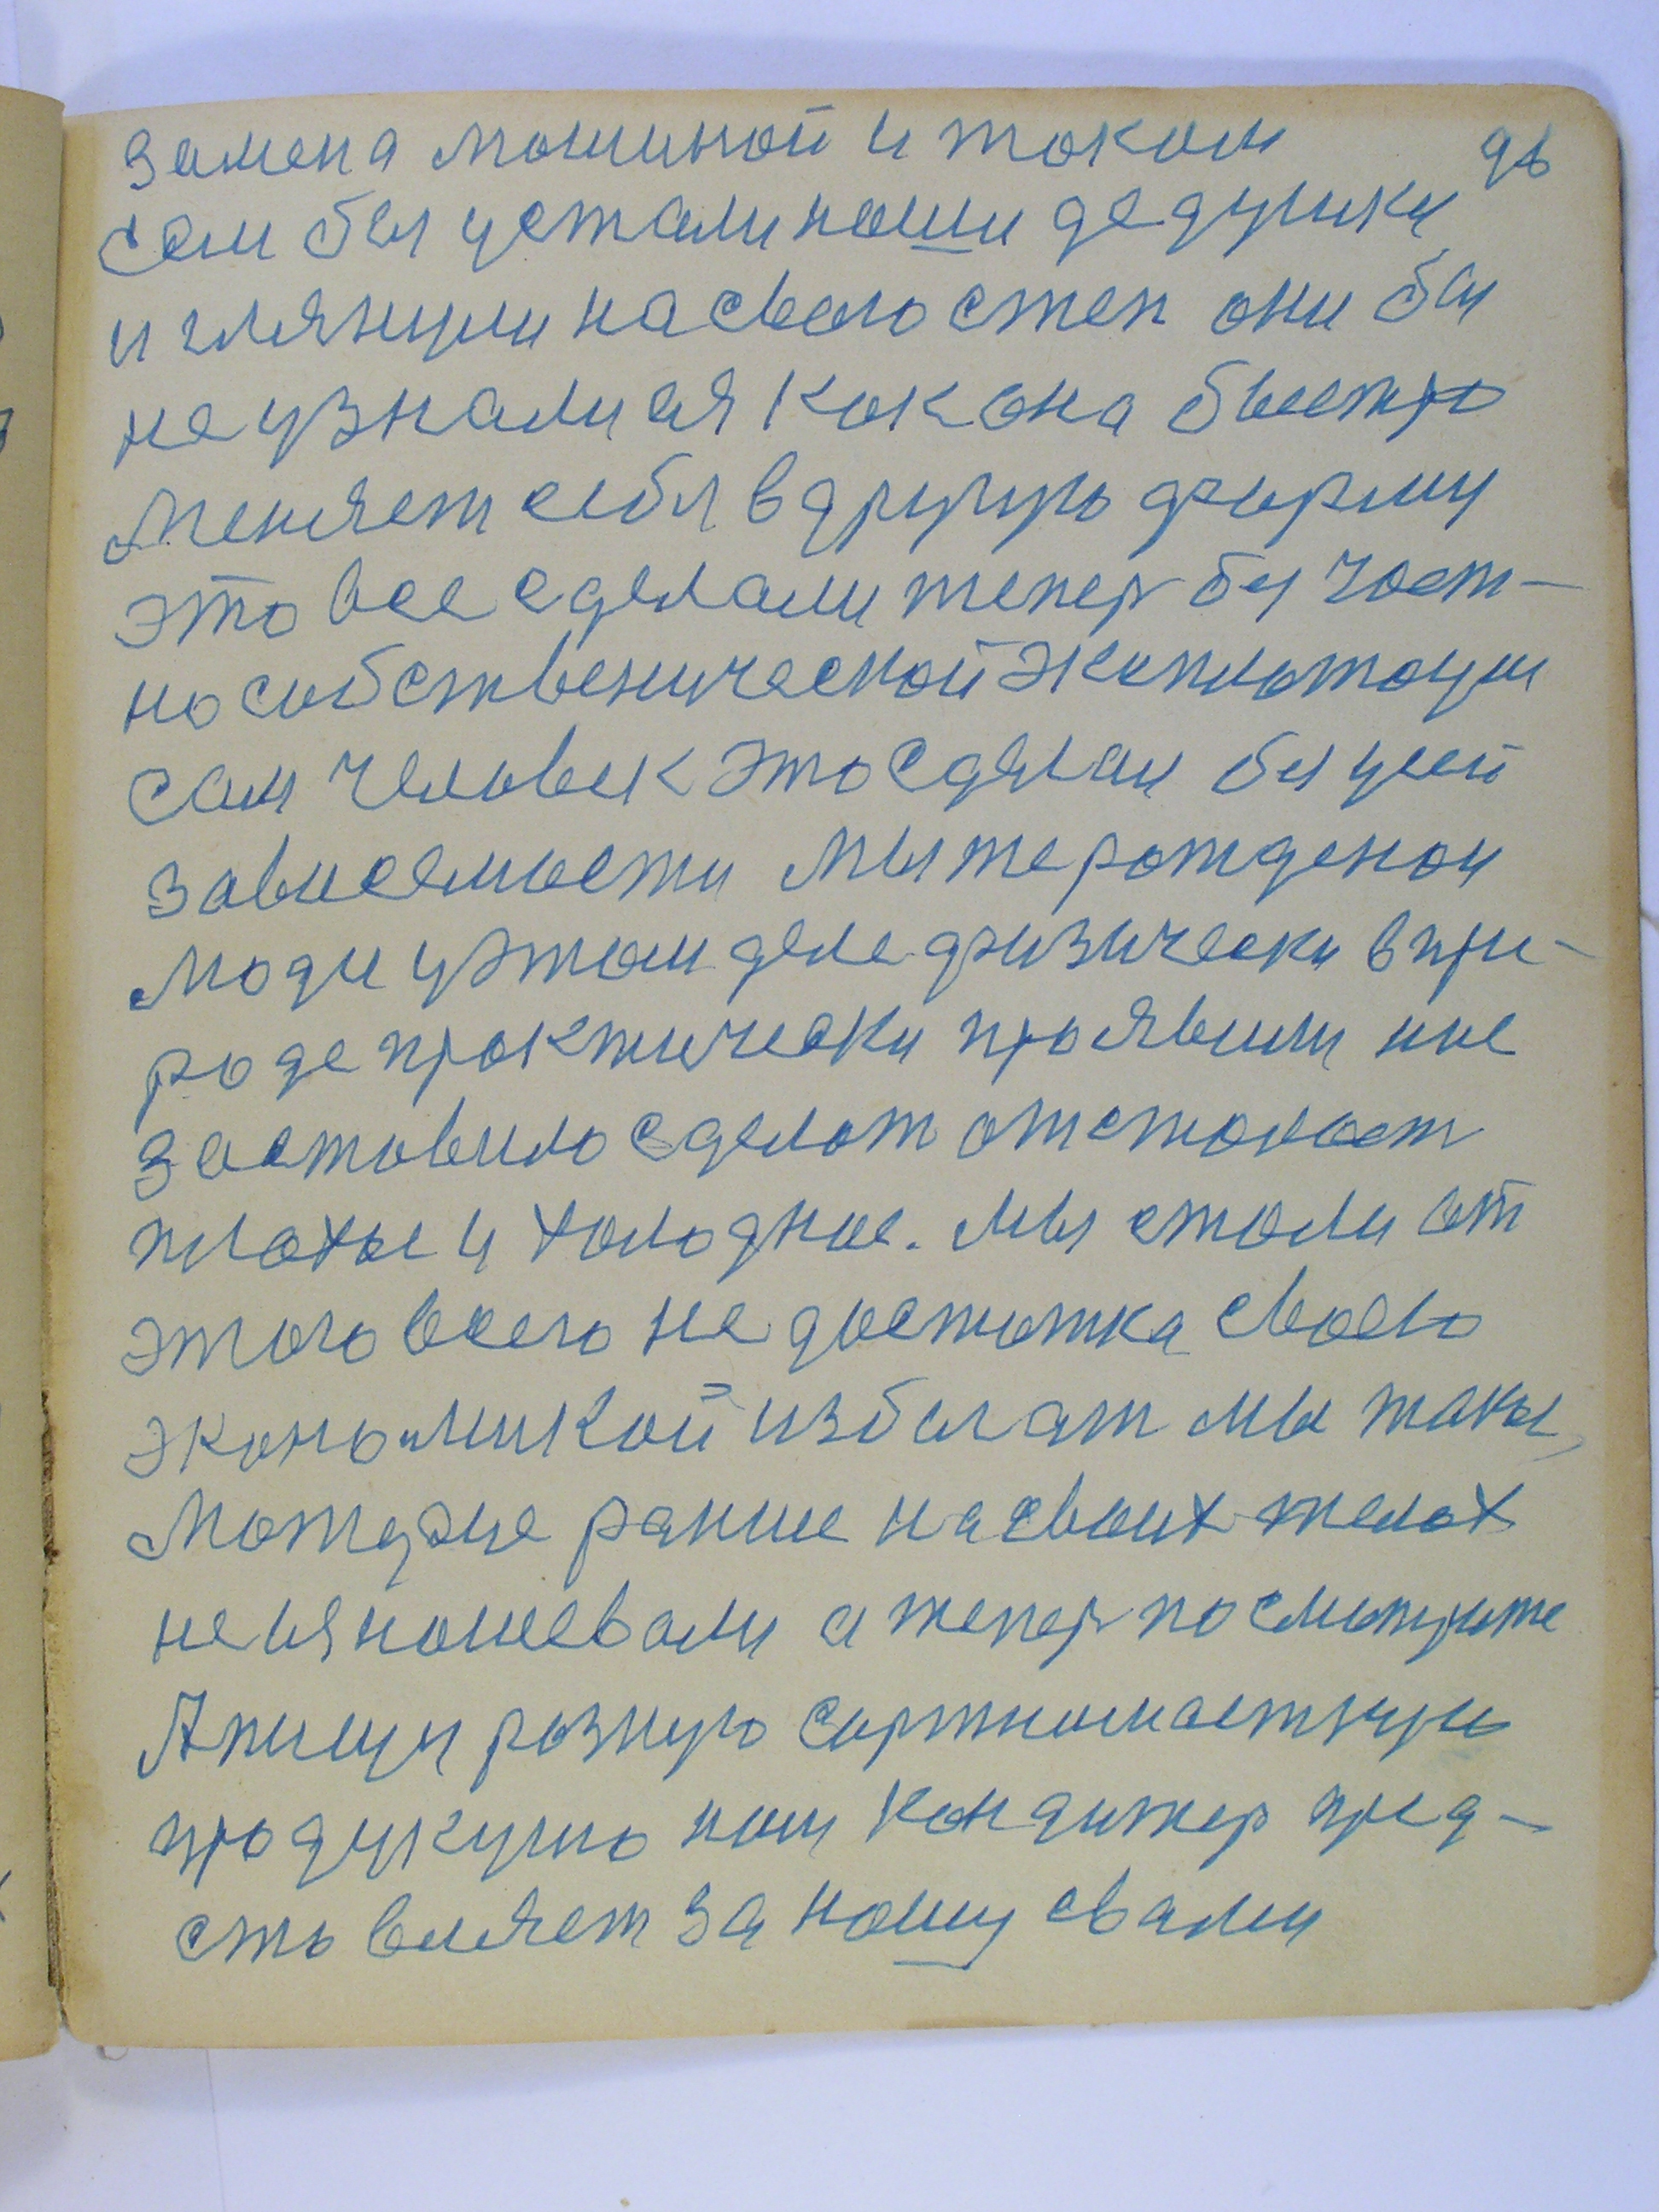 замена машиной и током 96
сем бы устали наши дедушки
и глянули на свою степ они бы
не узнали ея как она быстро
меняет себя в другую форму
это все сделали тепер бы част-
но собственической експлотации
сам человек это сделал бы усей
зависемости мы те рожденои
люди у этом деле физически в при-
роде практически проявили ние
заставило сделат отсталост
плохые и холодное. Мы стали от
этого всего не достатка своею
экономикой избегат мы такы,
матерые ранше на своих телах
не изношевали а тепер посмотрите
А пищу разную сортиментную
продукцию наш кондитер пред-
ставляет за нашу свами